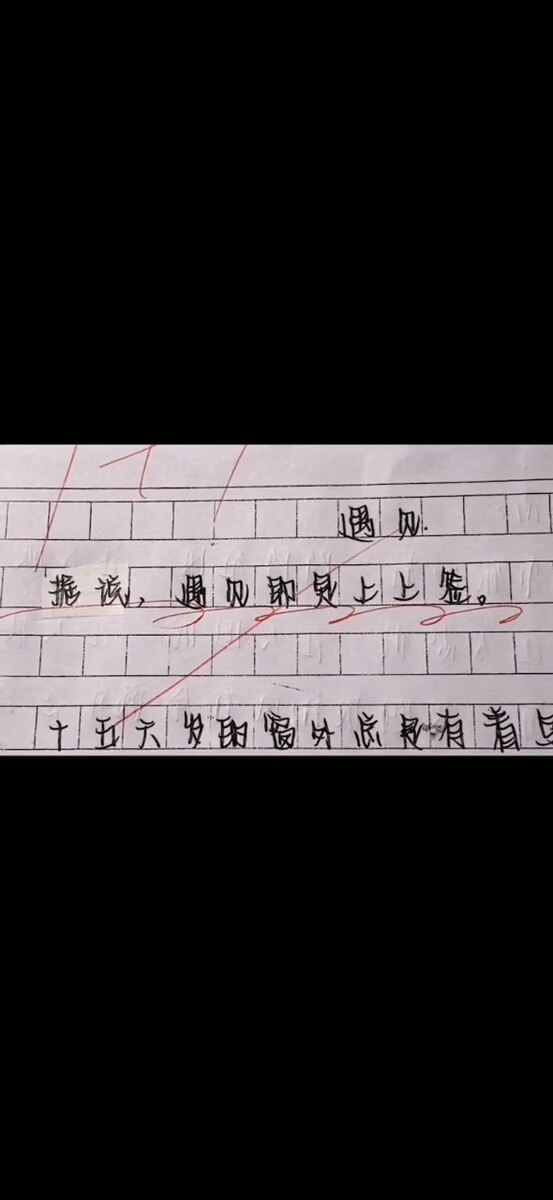 遇见
据说，遇见即是上上签。
十五六岁的窗外总是有着